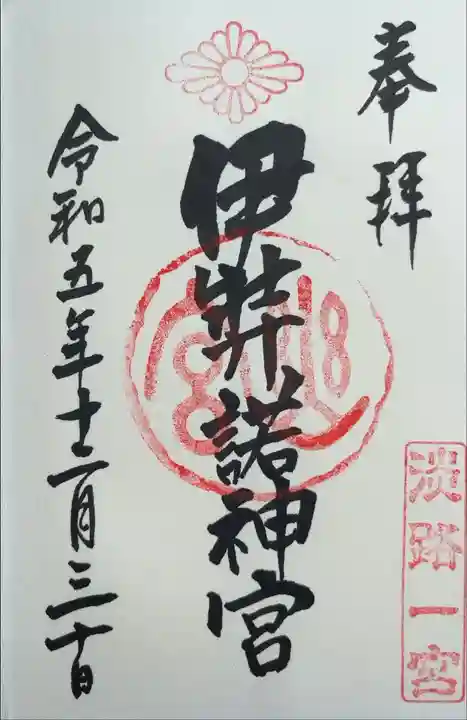 奉拝
淡路一宮
伊弉諾神宮
令和五年十二月三十日